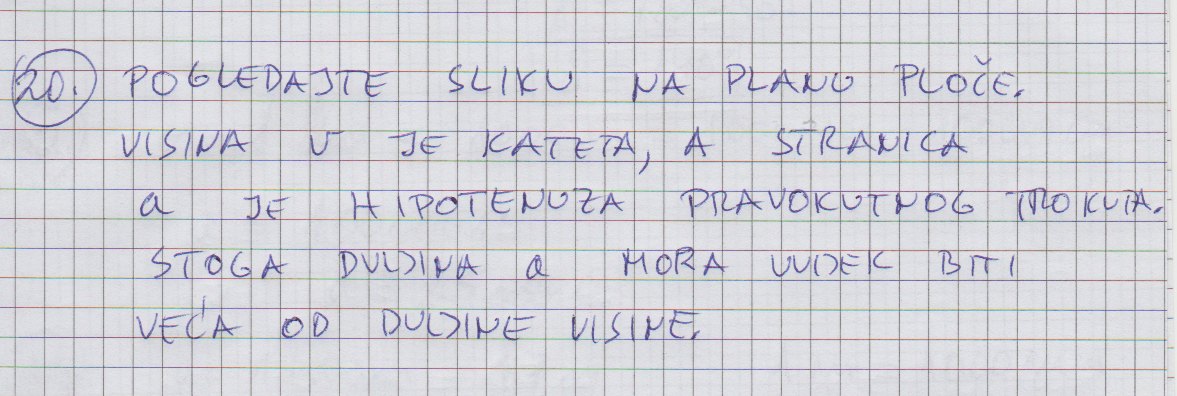 20. POGLEDAJTE SLIKU NA PLANU PLOČE.
VISINA v JE KATETA, A STRANICA
a JE HIPOTENUZA PRAVOKUTNOG TROKUTA.
STOGA DULJINA a MORA UVIJEK BITI
VEĆA OD DULJINE VISINE.